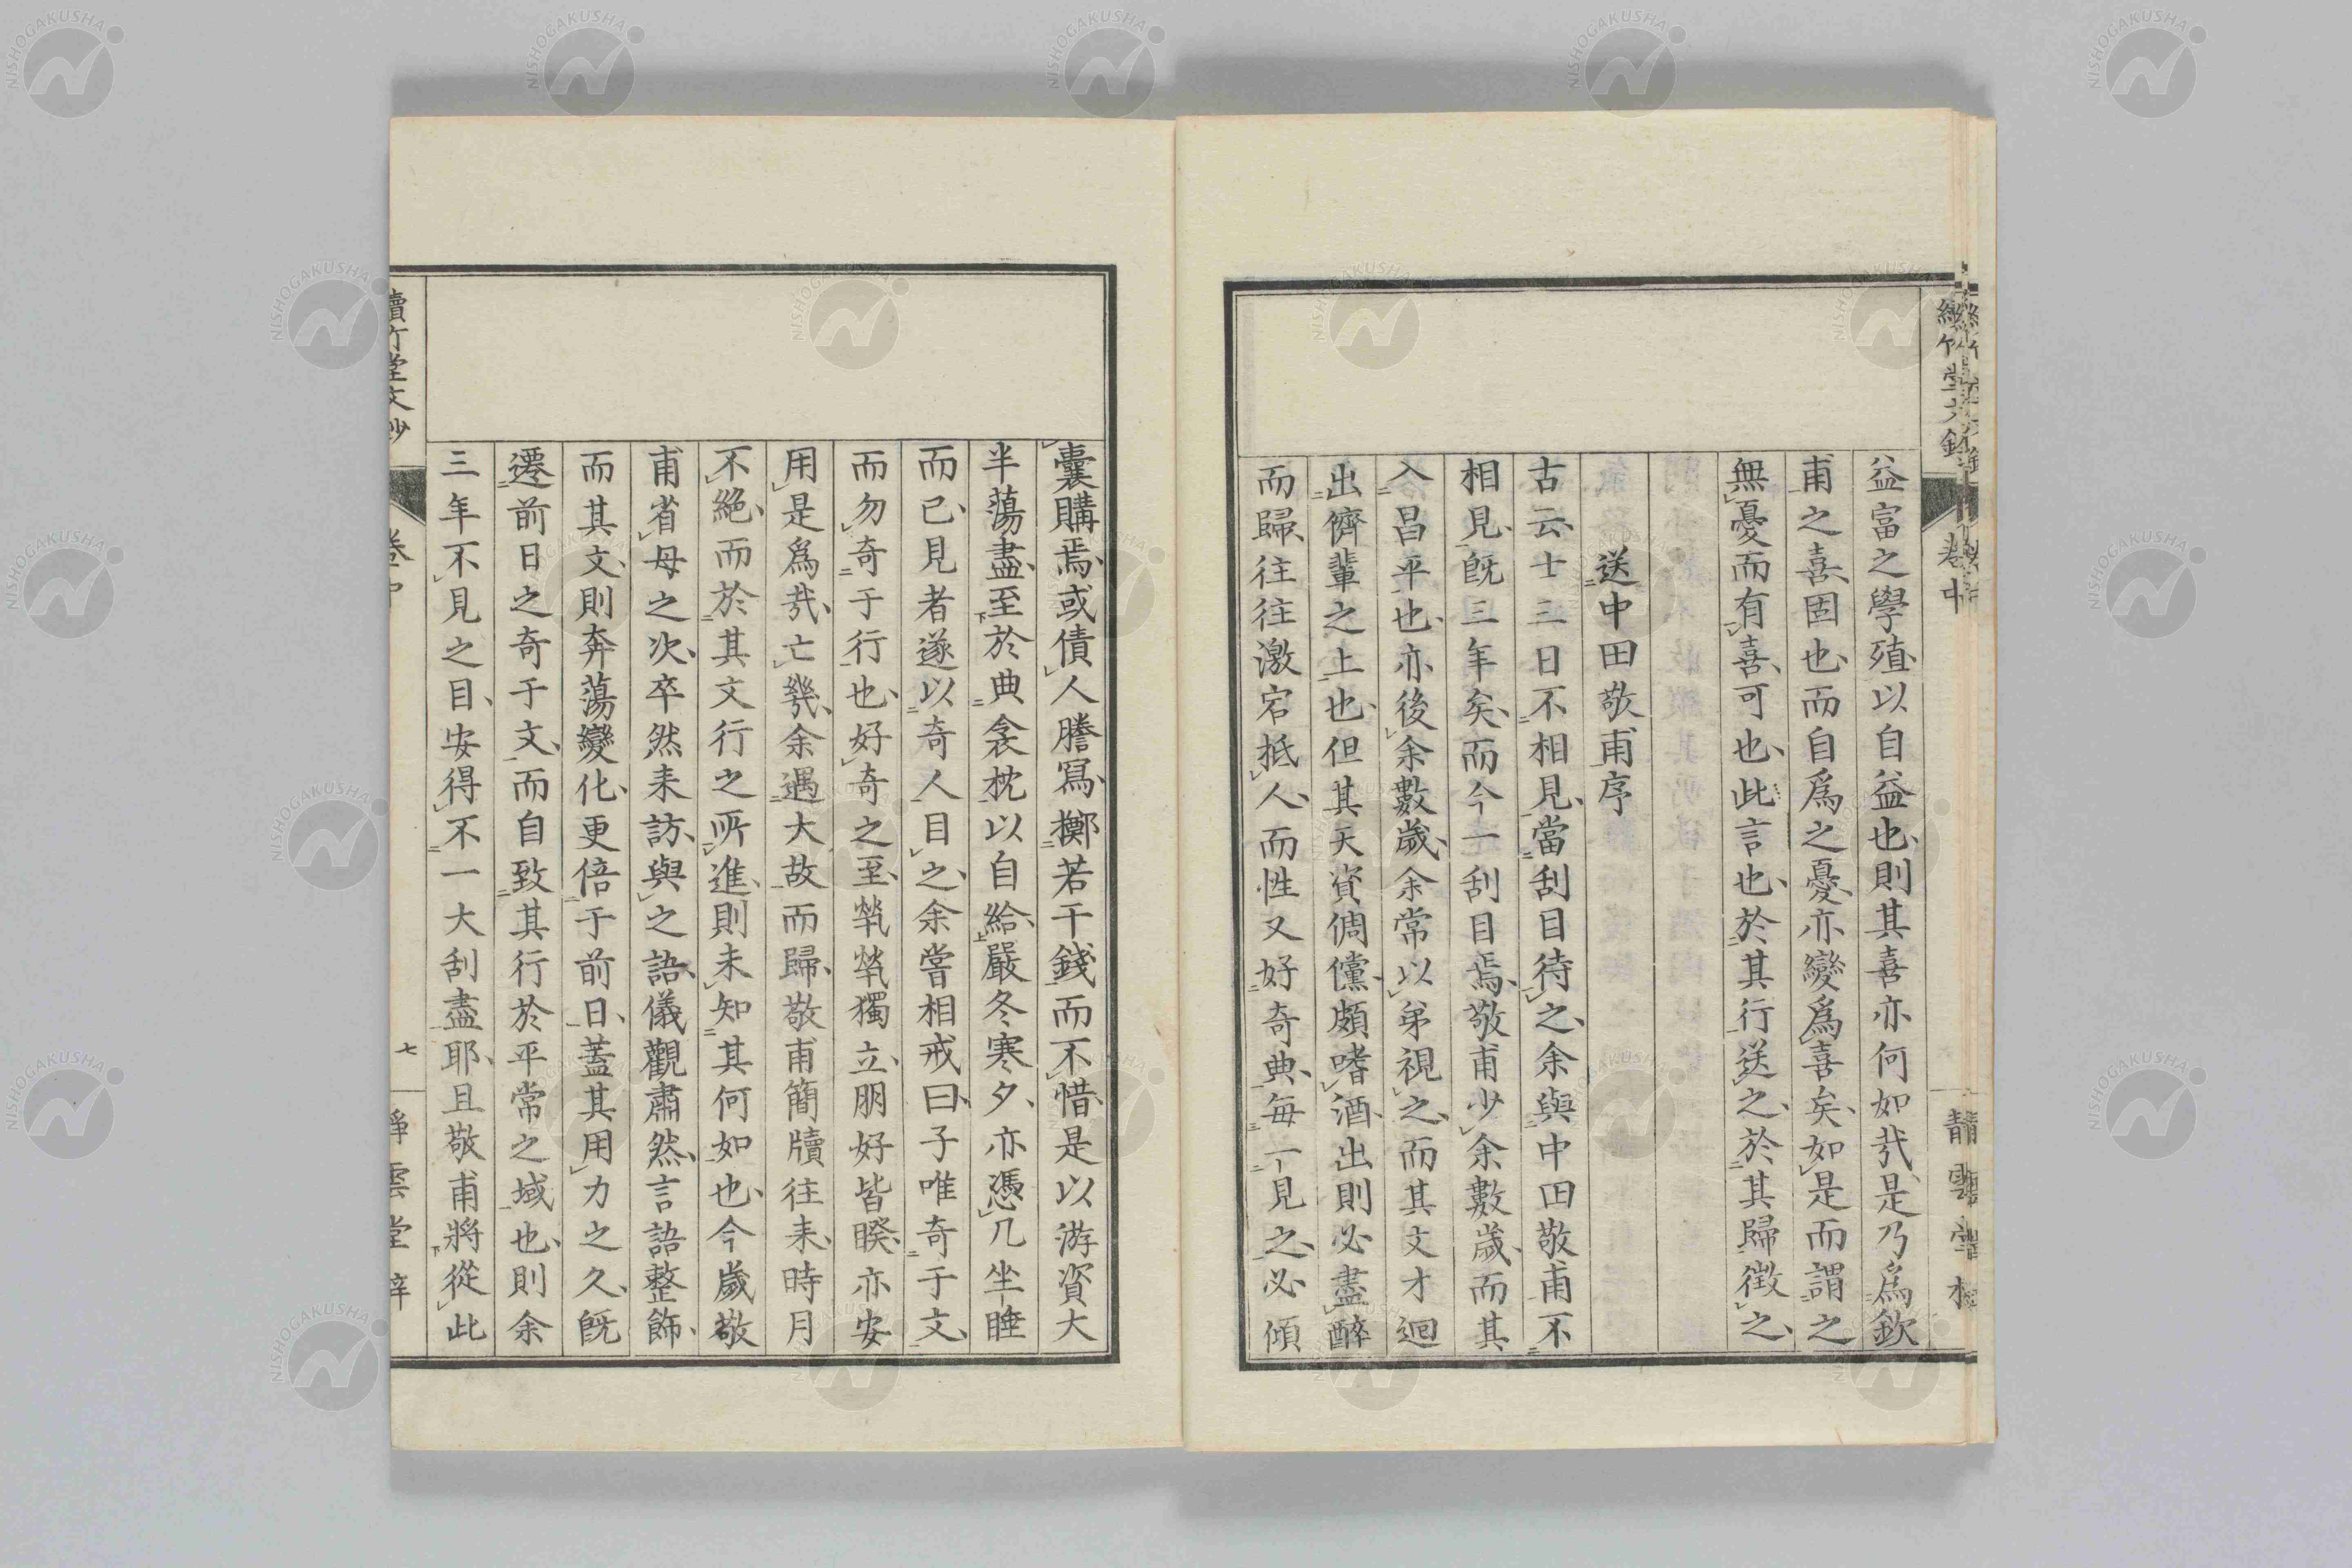 益富之學殖、以自益也、則其喜亦何如哉、是乃爲欽
甫之喜、固也、而自爲之憂、亦變爲喜矣、如是而謂之
無憂而有喜、可也、此言也、於其行送之、於其歸徴之、
送中田敬甫序
古云、士三日不相見、當刮目待之、余與中田敬甫不
相見、既三年矣、而今一刮目焉、敬甫少余數歳、而其
入昌平也、亦後余數歳、余常以弟視之、而其文才迴
出儕輩之上也、但其天資倜儻、頗嗜酒、出則必盡醉
而歸、往往激宕抵人、而性又好奇典、毎一見之、必傾
囊購焉、或債人謄寫、擲若干錢而不惜、是以游資大
半蕩盡、至於典衾枕以自給、嚴冬寒夕、亦憑几坐睡
而已、見者遂以奇人目之、余嘗相戒曰、子唯奇于文、
而勿奇于行也、好奇之至、煢煢獨立、朋好皆暌、亦安
用是爲哉、亡幾、余遇大故而歸、敬甫簡牘往来、時月
不絶、而於其文行之所進、則未知其何如也、今歳敬
甫省母之次、卒然来訪、與之語、儀觀肅然、言語整飾、
而其文、則奔蕩變化、更倍于前日、蓋其用力之久、既
遷前日之奇于文、而自致其行於平常之域也、則余
三年不見之目、安得不一大刮盡耶、且敬甫將從此
續竹堂文鈔
卷中
七
靜雲堂梓